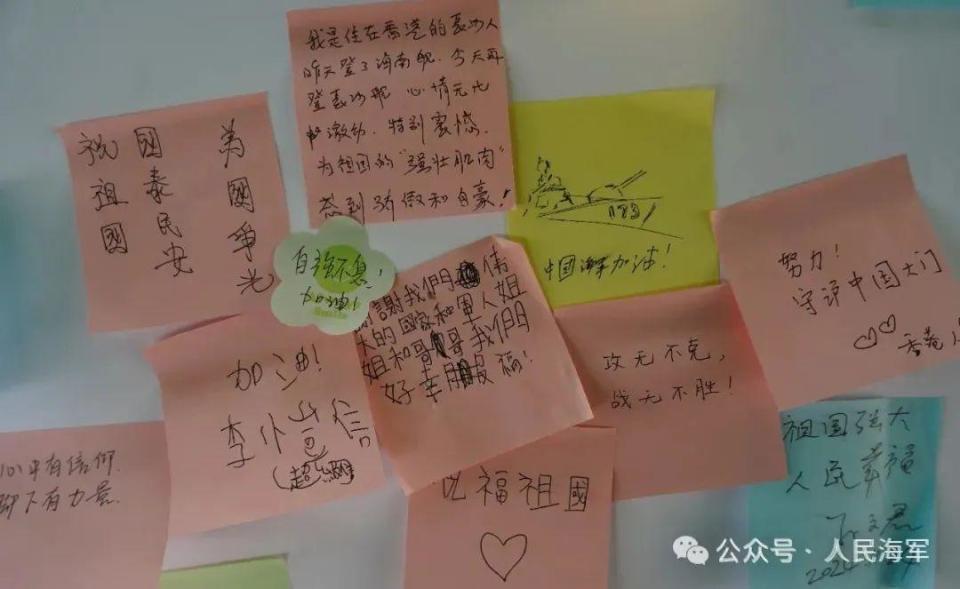 我是住在香港的长沙人
昨天登了海南舰.今天再
登长沙舰 心情无比
激动.特别震憾.
为祖国的"强壮肌肉"
感到骄傲和自豪!
祝祖國
國泰民安
為國爭光
自强不息!
加油!
中国海军加油!
努力!
守护中国大门
香港
謝我們偉
大的國家和軍人姐
姐和哥哥我們
好幸福!
攻无不克,
战无不胜!
加油!
李
信
心中有信仰.
脚下有力量.
祝福祖國
祖国强大
人民幸福
公众号·人民海军